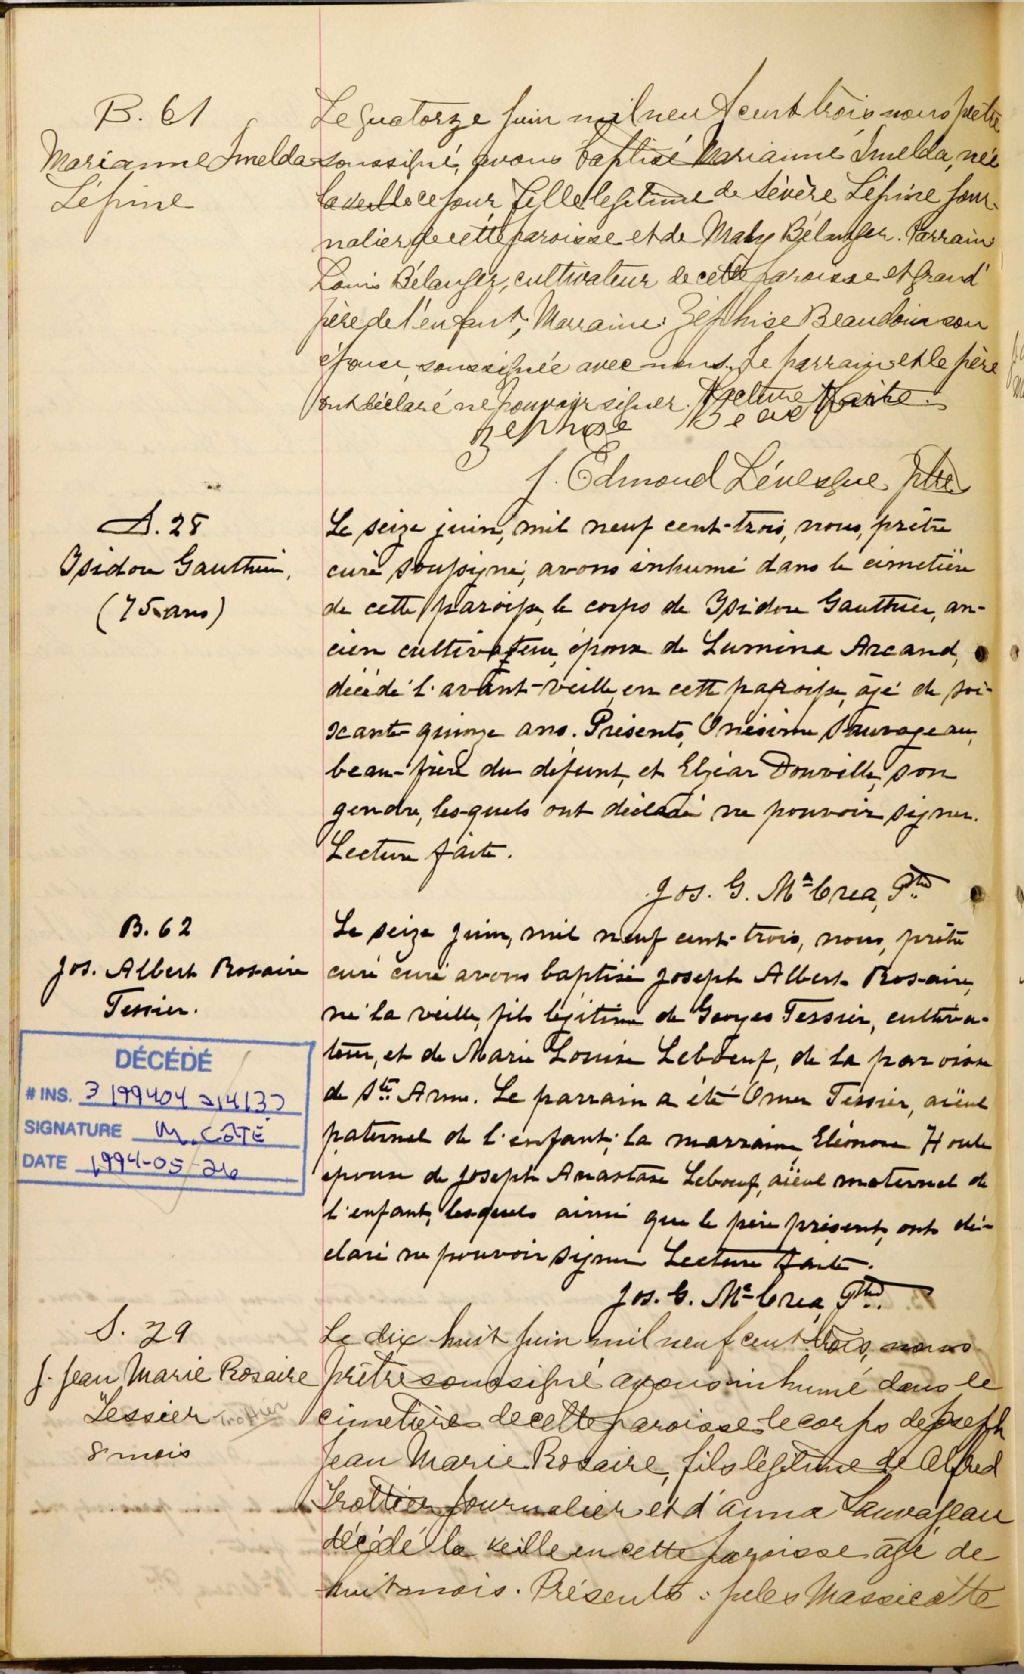 B. 61
Marianne Imelda
Lépine
Le quatorze juin mil neuf cent trois nous prêtre
soussigné, avons baptisé Marianne Imelda, née
la veille ce jour fille légitime de Sévère Lépine jour-
nalier de cette paroisse et de Mary Bélanger. Parrain
Louis Bélanger, cultivateur de cette paroisse et grand
père de l'enfant; Marraine: Zéphise Beaudoin son
épouse, soussignée avec nous. Le parrain et le père
ont déclaré ne pouvoir signer. Lecture faite.
Zephise
J. Edmond Lévesque ptre
S. 28
Isidore Gauthier,
(75 ans)
Le seize juin, mil neuf cent-trois, nous, prêtre
curé soussigné, avons inhumé dans le cimetière
de cette paroisse, le corps de Isidore Gauthier, an-
cien cultivateur, époux de Lumina Arcand,
décédé l'avant-veille, en cette paroisse, âgé de soi-
xante-quinze ans. Présents, Onésime Sauvageau,
beau-frère du défunt, et Elzéar Douville, son
gendre, lesquels ont déclaré ne pouvoir signer.
Lecture faite.
Jos. G. McCrea, Ptre
B. 62
Jos. Albert Rosaire
Tessier.
Le seize juin, mil neuf cent-trois, nous, prêtre
curé curé avons baptisé Joseph Albert Rosaire,
né la veille, fils légitime de Georges Tessier, cultiva-
teur, et de Marie Louise Leboeuf, de la paroisse
de Ste Anne. Le parrain a été Omer Tessier, aïeul
paternel de l'enfant; la marraine, Eléonore Houle
épouse de Joseph Anastase Leboeuf, aïeul maternel de
l'enfant, lesquels ainsi que le père présent, ont dé-
claré ne pouvoir signer. Lecture faite.
Jos. G. McCrea, Ptre.
DÉCÉDÉ
# INS. 3 199404
SIGNATURE M. CÔTÉ
DATE 1994-05-26
S. 29
J. Jean Marie Rosaire
Tessier Trottier
8 mois
Le dix huit juin mil neuf cent trois, nous
prêtre soussigné avons inhumé dans le
cimetière de cette paroisse le corps de Joseph
Jean Marie Rosaire, fils légitime de Alfred
Trottier journalier et d'Anna Sauvageau
décédé la veille en cette paroisse âgé de
huit mois. Présents: Jules Massicotte